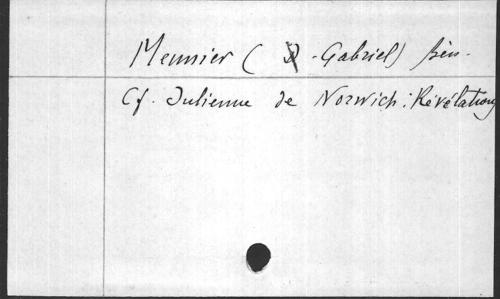 Meunier (D. Gabriel) bén.
Cf. Julienne de Norwich : Révélations